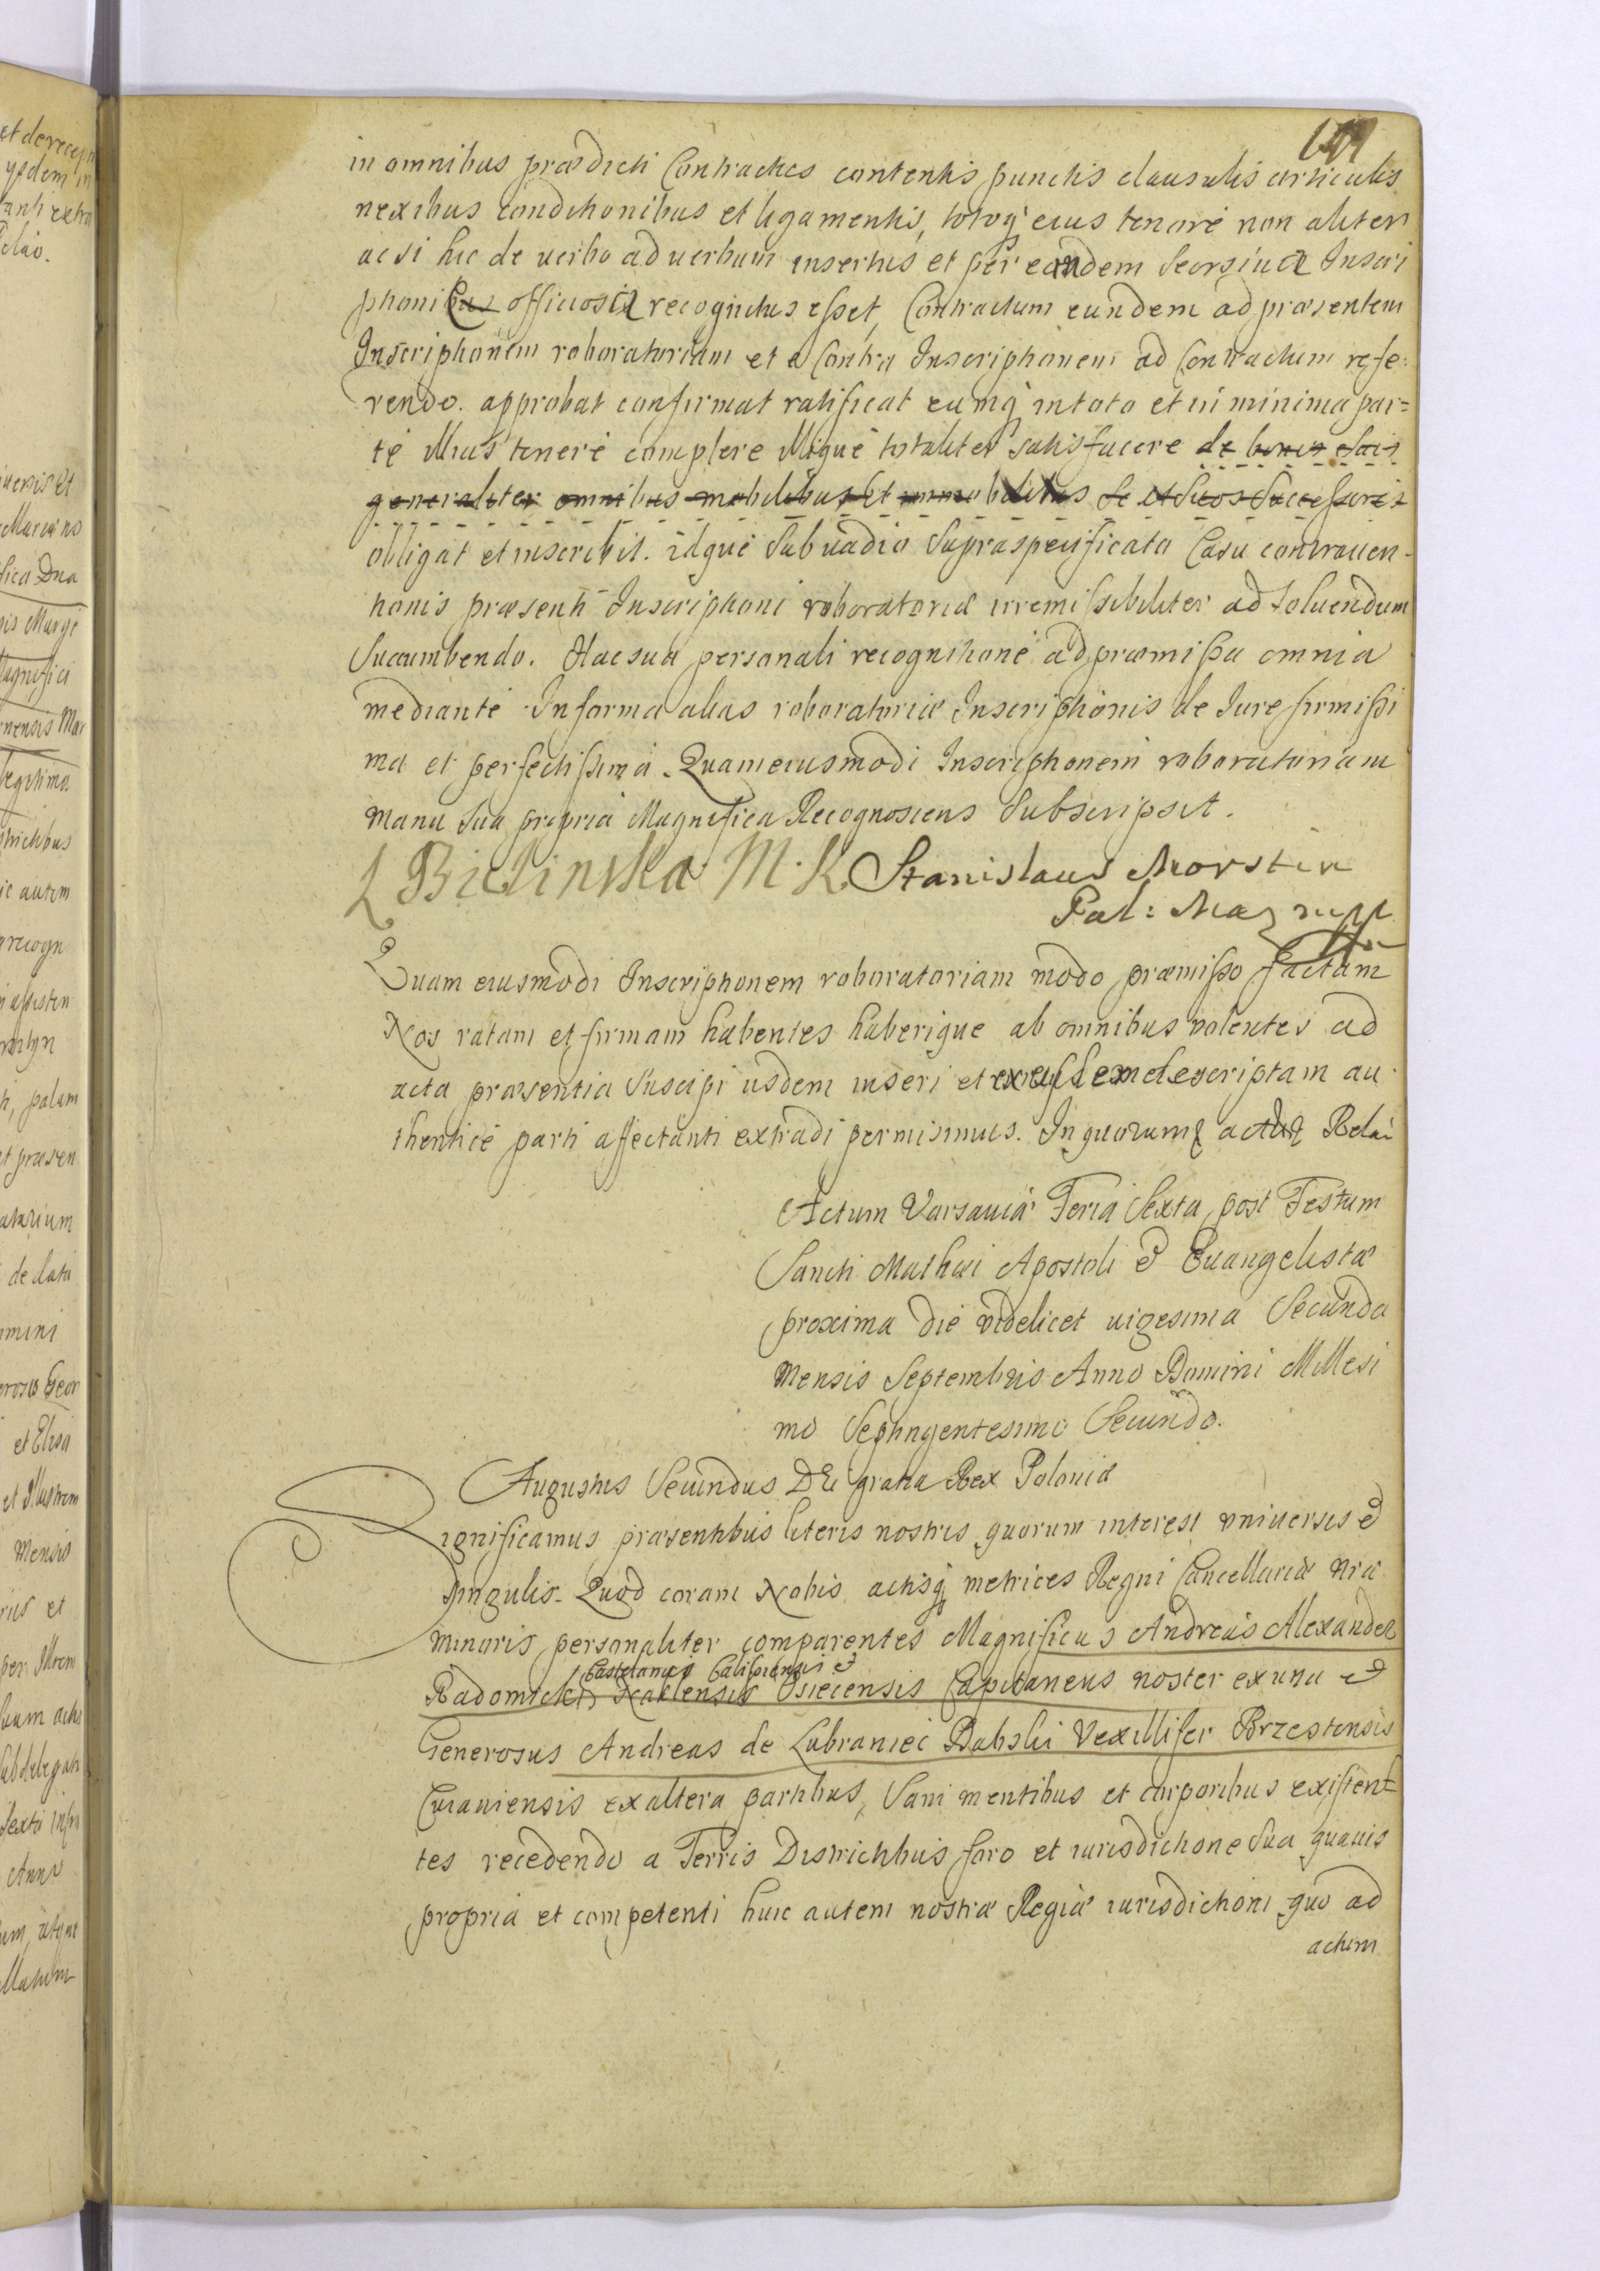 in omnibus prædicti Contractus contentis punctis clausulis articulis
nexibus conditionibus et ligamentis, totoq eius tenore non aliter
ac si hic de verbo ad verbum insertus et per eandem seorsiva Inscri
ptionibus officiosa recognitus esset, Contractum eundem ad præsentem
Inscriptionem roboratoriam et e contra Inscriptionem ad Contractum refe:
rendo. approbat confirmat ratificat eumq in toto et in minima par=
te illius tenere complere illique totaliter satisfacere de bonis suis
generaliter omnibus mobilibus et immobilibus se et suos successores
obligat et inscribit. idque sub vadio supraspecificato Casu contraven-
tionis præsenti Inscriptioni roboratoriæ irremissibiliter ad solvendum
succumbendo. Hac sua personali recognitione ad præmissa omnia
mediante In forma alias roboratoriæ Inscriptionis de Iure firmissi
ma et perfectissima. Quam eiusmodi Inscriptionem roboratoriam
manu sua propria Magnifica Recognoscens subscripsit.
L Bielinska M. K. Stanislaus Morstin
Pal: Maz mpp
Quam eiusmodi Inscriptionem roboratoriam modo præmisso factam
Nos ratam et firmam habentes haberique ab omnibus volentes ad
acta præsentia suscipi iisdem inseri et ex eisdem descriptam au
thentice parti affectanti extradi permisimus. In quorum actus Relai
Actum Varsaviæ Feria Sexta post Festum
Sancti Mathæi Apostoli et Evangelistæ
proxima die videlicet vigesima Secunda
Mensis Septembris Anno Domini Millesi
mo Septingentesimo Secundo.
Augustus Secundus DEi gratia Rex Poloniæ
Significamus præsentibus literis nostris quorum interest universis et
singulis. Quod coram Nobis actisq metrices Regni Cancellariæ nræ
minoris personaliter comparentes Magnificus Andreas Alexander
Castelanus Calissiensis et
Radomicki Naklensis Osiecensis Capitaneus noster ex una et
Generosus Andreas de Lubraniec Dabski Vexillifer Brzestensis
Cuiaviensis ex altera partibus, Sani mentibus et corporibus existent
tes recedendo a Terris Districtibus foro et iurisdictione sua quavis
propria et competenti huic autem nostræ Regiæ iurisdictioni quo ad
actum